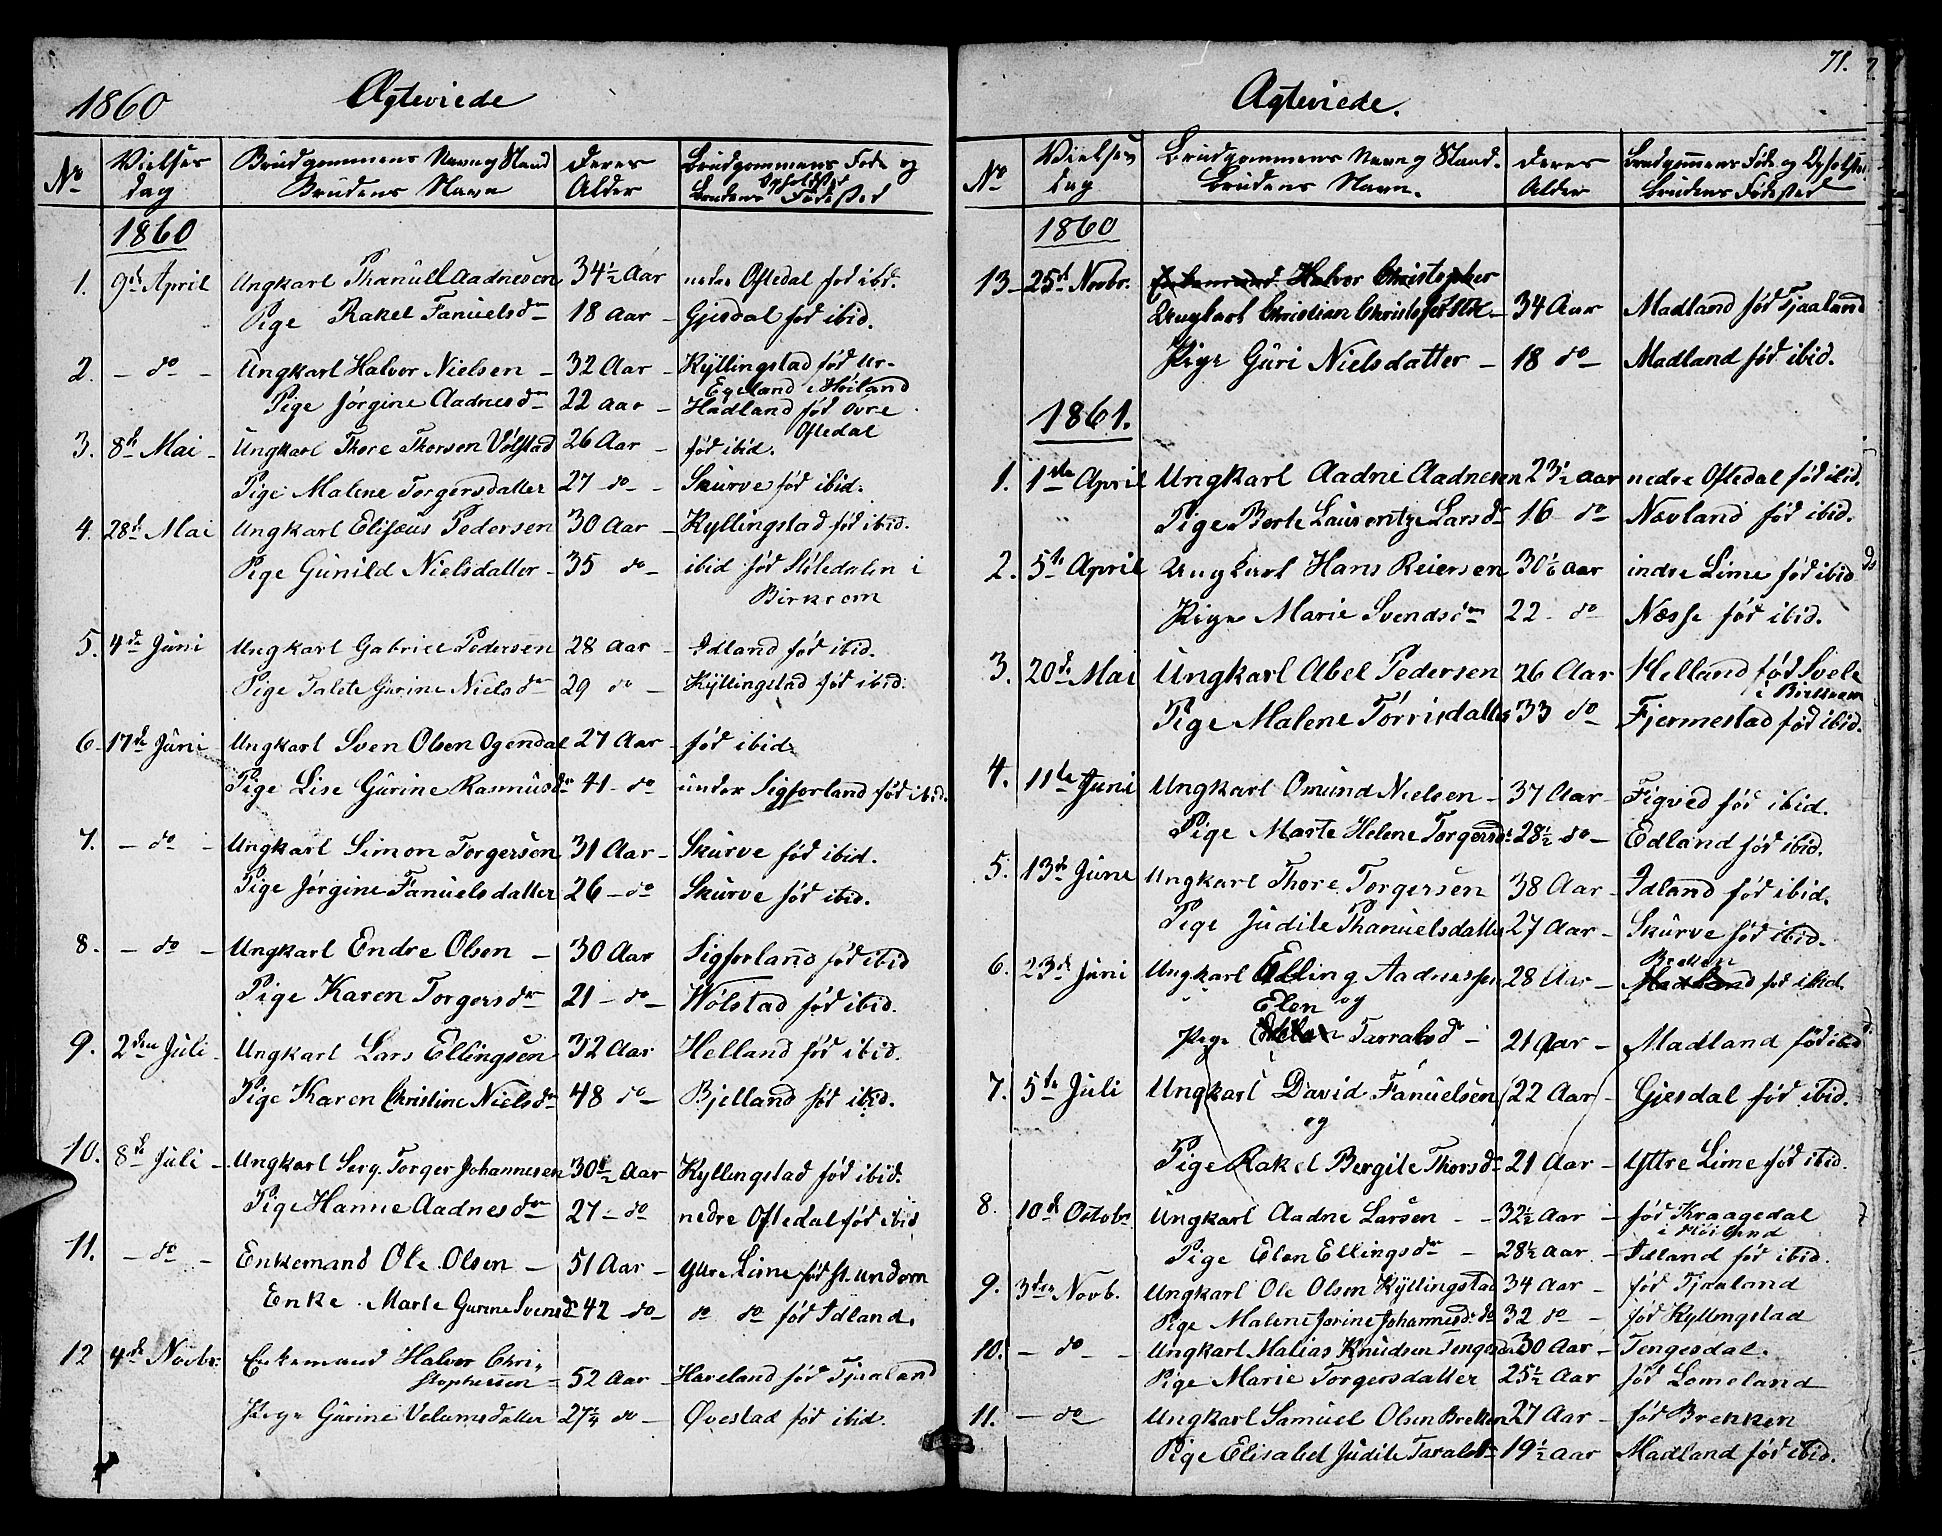 1860 Ægteviede
No Vielses dag Brudgommens Navn og Stand Brudens Navn Deres Alder Brudgommens Føde og Opholdsted Brudens Fødested
1860
1. 9de April Ungkarl Thanull Aadnesen 34½ Aar nedre Ofledal fød ibid.
Pige Rakel Fanuelsdr 18 Aar - Gjesdal fød ibid.
2. - do - Ungkarl Halvor Nielsen - 32 Aar - Kyllingstad fød Ur-
Egeland i Høiland
Pige Jørgine Aadnesdr 22 Aar - Hadland fød Øvre
Ofledal
3. 8de Mai - Ungkarl Thore Thorsen Vølstad 26 Aar - fød ibid.
Pige Malene Torgersdatter 27 - do - Skurve fød ibid.
4. 28de Mai Ungkarl Elisæus Pedersen 30 Aar - Kyllingstad fød ibid.
Pige Gunild Nielsdatter - 35 do - ibid fød Støledalen i
Birkrem
5. 4de Juni Ungkarl Gabriel Pedersen 28 Aar - Idland fød ibid.
Pige Talete Gurine Nielsdr 29 do - Kyllingstad fød ibid.
6. 17de Juni - Ungkarl Sven Olsen Ogendal 27 Aar - fød ibid.
Pige Lise Gurine Rasmusdr 41 - do - under Sigforland fød ibid.
7. - do - Ungkarl Simon Torgersen 31 Aar - Skurve fød ibid.
Pige Jørgine Fanuelsdatter 26 - do Skurve fød ibid.
8. - do - Ungkarl Endre Olsen - 30 Aar Sigforland fød ibid
Pige Karen Torgersdr 21 - do - Wølstad fød ibid.
9. 2den Juli - Ungkarl Lars Ellingsen 32 Aar - Helland fød ibid.
Pige Karen Christine Nielsdr 48 do - Bjelland fød ibid.
10. 8de Juli - Ungkarl Serg. Torger Johannesen 30½ Aar Kyllingstad fød ibid.
Pige Hanne Aadnesdr 27 - do nedre Ofledal fød ibid
11. - do - Enkemand Ole Olsen - 51 Aar - ytre Lime fød st. undem
Enke Marte Gurine Svensdr 42 do - do do fød Idland.
12 4de Novbr: Enkemand Halvor Chri-
stophersen - 52 Aar - Haveland fød Tjaaland
Pige Gurine Velumsdatter 27¼ do - Øvestad fød ibid.
71.
Ægteviede.
No Vielses dag Brudgommens Navn og Stand. Brudens Navn. Deres Alder Brudgommens Føde og Opholdsted Brudens Fødested
1860
13 - 25de Novbr. Enkemand Halvor Christopher
Ungkarl Christian Christofersen - 34 Aar Madland fød Tjaaland
Pige Guri Nielsdatter - 18 do - Madland fød ibid.
1861.
1. 1ste April Ungkarl Aadne Aadnesen 23½ aar nedre Ofledal fød ibid.
Pige Berte Laurentze Larsdr 16 do Nævland fød ibid.
2. 5te April Ungkarl Hans Reiersen 30⅙ aar indre Lime fød ibid
Pige Marie Svendsdr 22 - do Næsse fød ibid.
3. 20de Mai Ungkarl Abel Pedersen 26 Aar Helland fød Svele
i Birkrem
Pige Malene Tørrisdatter 33 do Fjermestad fød ibid.
4. 11te Juni Ungkarl Omund Nielsen - 37 Aar - Figved fød ibid.
Pige Marte Helene Torgersdr 28½ do - Edland fød ibid.
5. 13de June Ungkarl Thore Torgersen 38 Aar - Idland fød ibid.
Pige Judite Thanuelsdatter 27 Aar - Skurve fød ibid.
6. 23de Juni Ungkarl Elling Aadnessen 28 Aar - Brekken Madland fød ibid.
Elen og
Pige Tarralsdr - 21 Aar - Madland fød ibid
7. 5te Juli Ungkarl David Fanuelsen 22 Aar - Gjesdal fød ibid.
og
Pige Rakel Bergite Thorsdr 21 Aar - Yttre Lime fød ibid.
8. 10de Octobr Ungkarl Aadne Larsen - - 32½ Aar - fød Kraagedal
i Høiland
Pige Elen Ellingsdr - 28½ aar - Idland fød ibid.
9. 3die Novb. Ungkarl Ole Olsen Kyllingstad 34 aar - fød Tjaaland
Pige Malene Jorine Johannesd: do 32 do - fød Kyllingstad
10. - do - Ungkarl Malias Knudsen Tengesdal 30 Aar - Tengesdal.
Pige Marie Torgersdatter 25½ Aar fød Lomeland
11. - do Ungkarl Samuel Olsen Brekken 27 Aar - fød Brekken
Pige Elisabet Judite Taralsdr 19½ Aar Madland fød ibid.